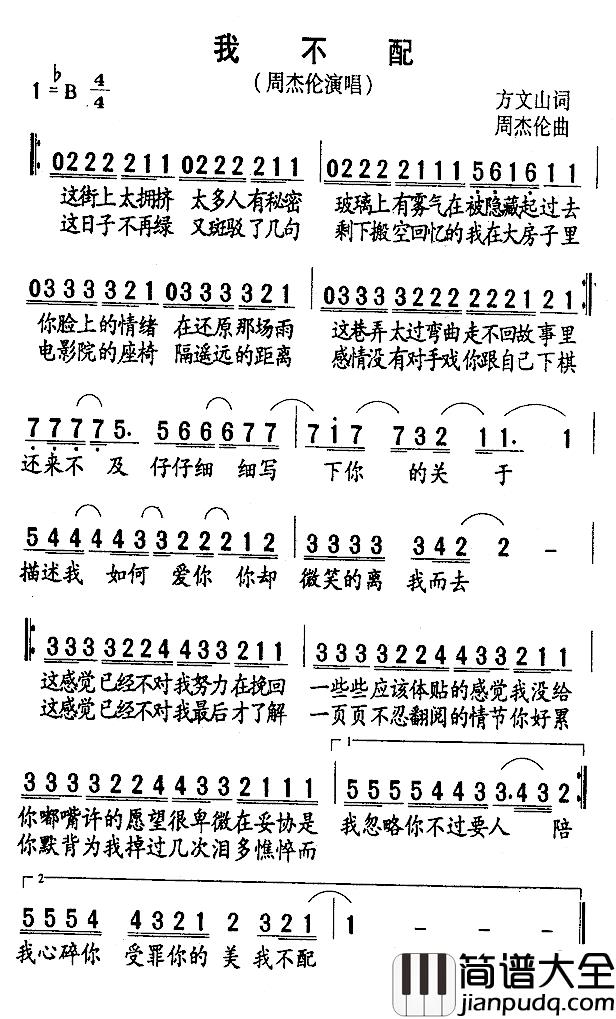 我 不 配
(周杰伦演唱)
1=♭B 4/4
方文山词
周杰伦曲
0222211 0222211 | 02222211 561611 |
这街上太拥挤 太多人有秘密 玻璃上有雾气在被隐藏起过去
这日子不再绿 又斑驳了几句 剩下搬空回忆的我在大房子里
0333321 0333321 | 03333222 222121 :|
你脸上的情绪 在还原那场雨 这巷弄太过弯曲走不回故事里
电影院的座椅 隔遥远的距离 感情没有对手戏你跟自己下棋
77775. 5666677 | 7i7 732 11. 1 |
还来不 及 仔仔细 细写 下你 的关 于
544443322212 | 3333 342 2 - |
描述我 如何 爱你 你却 微笑的离 我而去
3333224433211 | 3333224433211 |
这感觉已经不对我努力在挽回 一些些应该体贴的感觉我没给
这感觉已经不对我最后才了解 一页页不忍翻阅的情节你好累
1
33332244332111 | 555554433.432 :|
你嘟嘴许的愿望很卑微在妥协是 我忽略你不过要人 陪
你默背为我掉过几次泪多憔悴而
2
5554 4321 2 321 | 1 - - - |
我心碎你 受罪你的 美 我不配
简谱大全
jianpudq.com